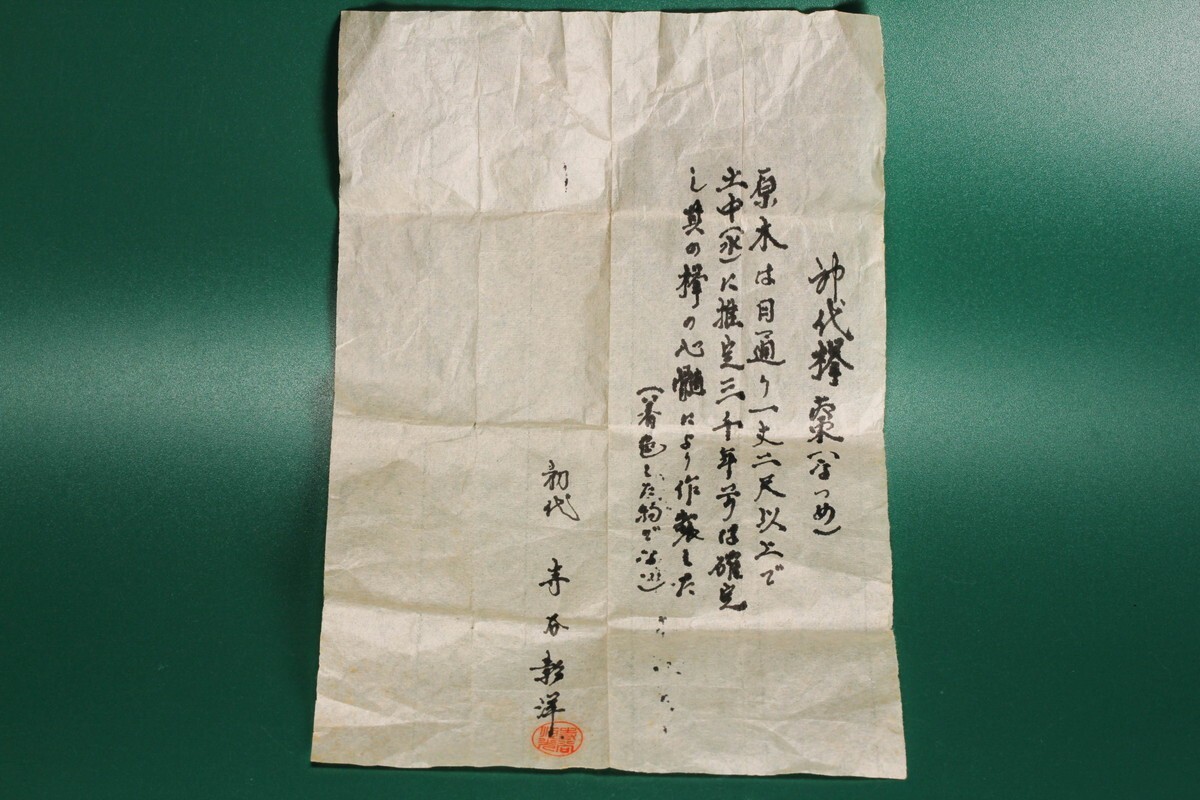 神代欅棗(なつめ)
原木は目通り一丈二尺以上で
土中(水)に推定三千年前は確定
し其の欅の心髄により作製した
(着色した物で
初代 谷 洋